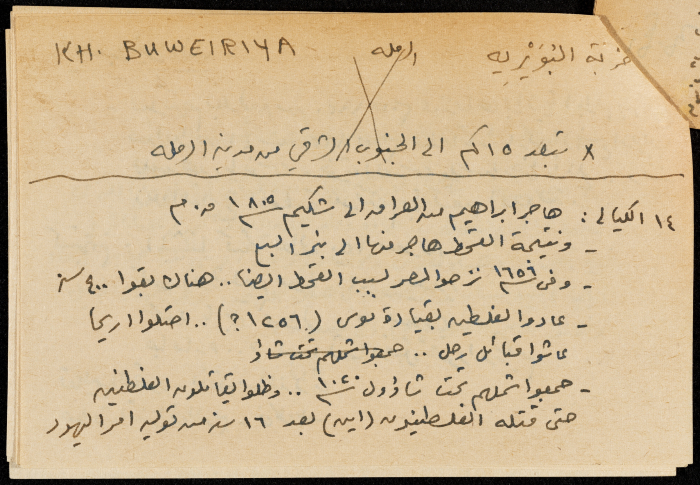 خربة البويرية الرمله KH. BUWEIRIYA
× تبعد ١٥ كم الى الجنوب الشرقي من مدينة الرمله
١٤ الكيالي: هاجر ابراهيم من العراق الى شكيم ١٨٠٥ ق. م
- ونتيجة القحط هاجر منها الى بئر السبع
- وفي ١٦٥٦ نزحوا لمصر لسبب القحط ايضا .. هناك بقوا ٤٠٠ سنه
- عادوا لفلسطين بقيادة موسى (١٢٥٦ ?) .. احتلوا اريحا
عاشوا قبائل رحل .. جمعوا شملهم تحت شاؤ
- جمعوا شملهم تحت شاؤول ١٠٢٠ .. وظلوا يقاتلون الفلسطينين
حتى قتله الفلسطينيون (اين) بعد ١٦ سنه من توليه امر اليهود